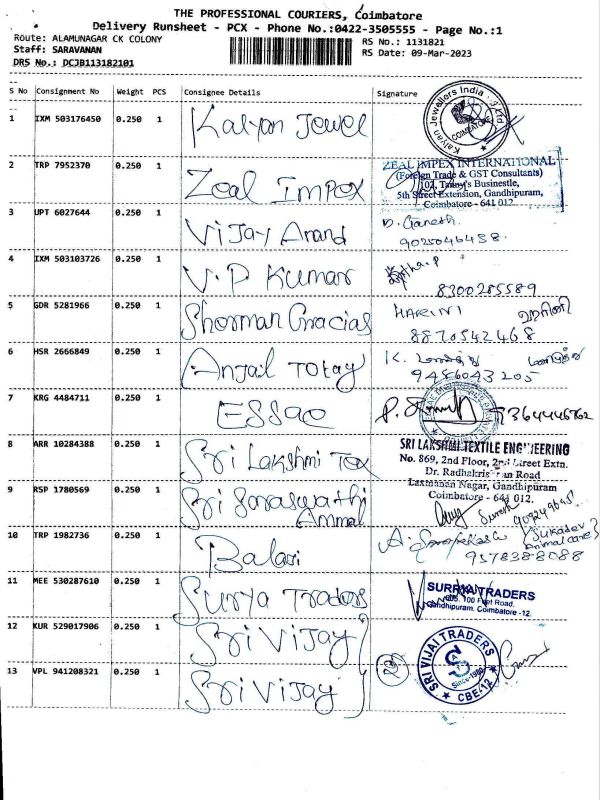 THE PROFESSIONAL COURIERS, Coimbatore
Delivery Runsheet - PCX - Phone No.:0422-3505555 - Page No.:1
Route: ALAMUNAGAR CK COLONY
RS No.: 1131821
Staff: SARAVANAN
RS Date: 09-Mar-2023
DRS No.: DCJB113182101
S No Consignment No Weight PCS Consignee Details Signature
1 IXM 503176450 0.250 1 Kalyan Jewel
Kalyan Jewellers India
COIMBATORE
2 TRP 7952370 0.250 1 Zeal Impex
ZEAL IMPEX INTERNATIONAL
(Foreign Trade & GST Consultants)
5th Street Extension, Gandhipuram,
Coimbatore - 641 012.
3 UPT 6027644 0.250 1 Vijay Anand
D. Ganesh
9025046458.
4 IXM 503103726 0.250 1 V.P Kumar
8300285589
5 GDR 5281966 0.250 1 Shorman Gracias
HARINI ஹரிணி
8870542468
6 HSR 2666849 0.250 1 Anjali Totay
K.
9486043205
7 KRG 4484711 0.250 1 ESSAE
P.
8 ARR 10284388 0.250 1 Sri Lakshmi Tex
SRI LAKSHMI TEXTILE ENGINEERING
No. 869, 2nd Floor, 2nd Street Extn.
Dr. Radhakrishnan Road
Laxmanan Nagar, Gandhipuram
Coimbatore - 641 012.
9 RSP 1780569 0.250 1 Sri Saraswathi
Ammal
Suresh
10 TRP 1982736 0.250 1 Balaji
A.
(Sukadev
animal care)
9578388088
11 MEE 530287610 0.250 1 Surya Traders
SURRYA TRADERS
100 Feet Road,
Gandhipuram. Coimbatore -12.
12 KUR 529017906 0.250 1 Sri Vijay
13 VPL 941208321 0.250 1 Sri Vijay
2
SRI VIJAI TRADERS
S
Since-1985
CBE-12